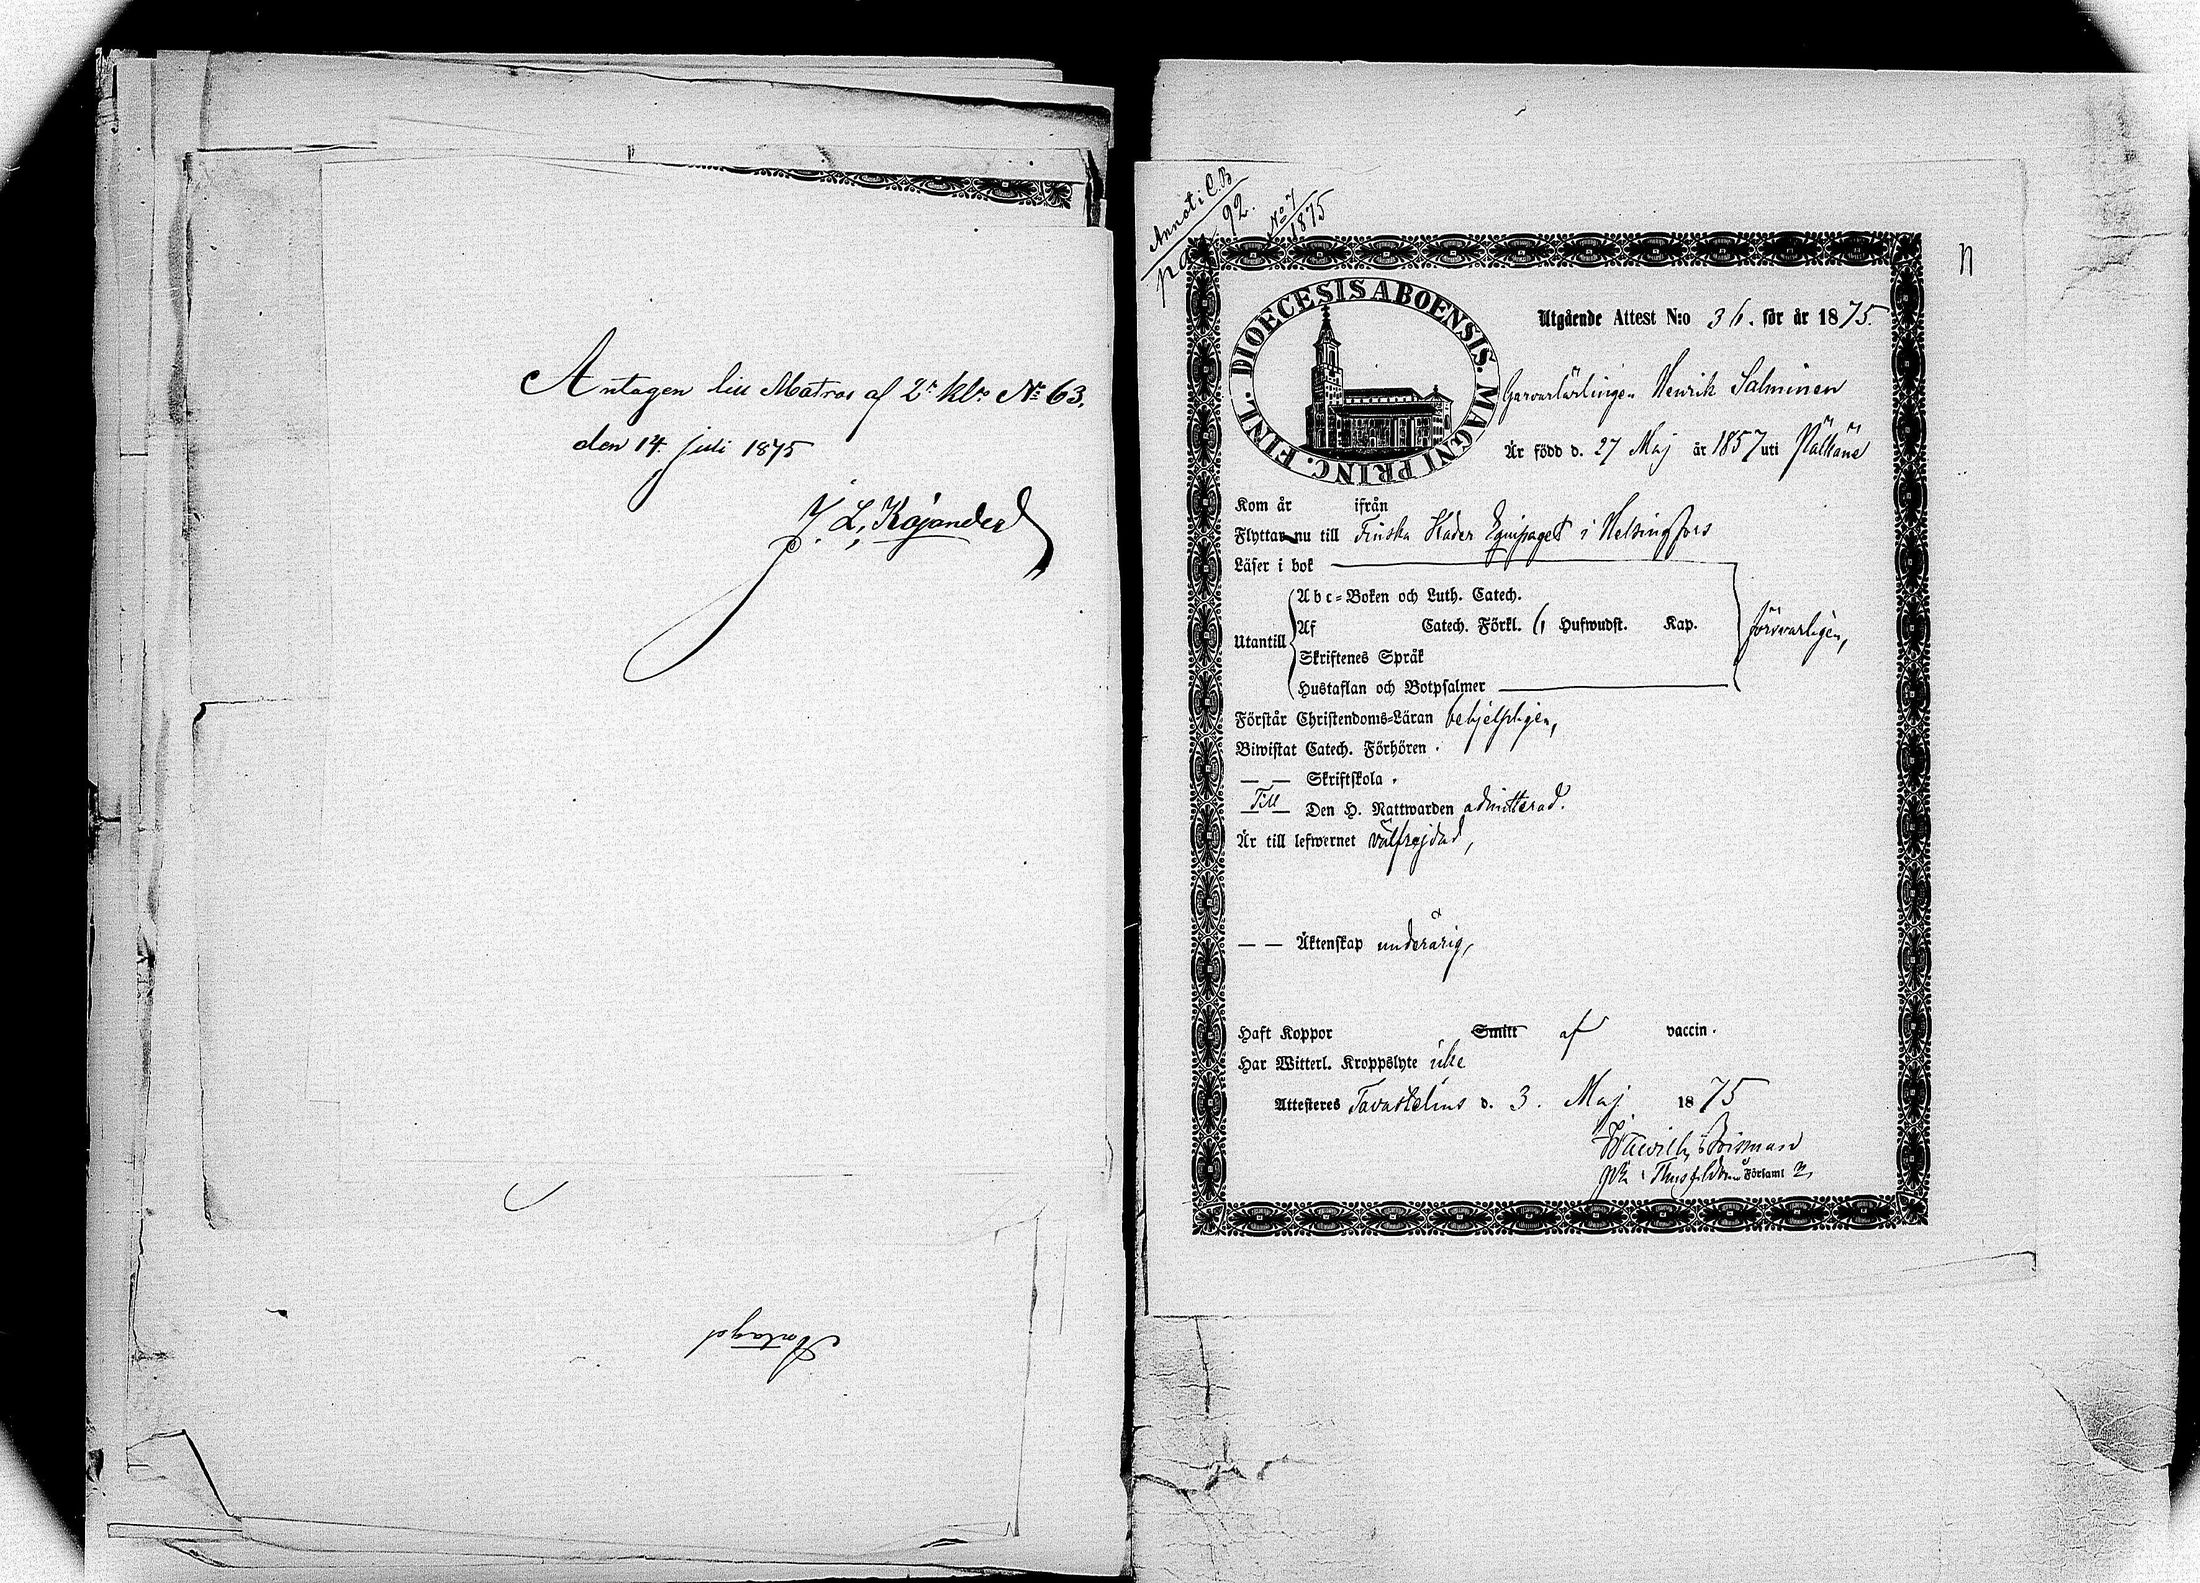 Antagen till Matros af 2:a kl:s No 63.
den 14. juli 1875
J. L. Kajander
Antagol
Annot i C.B
pag. 92.
No 7
1875
n
DIOECESIS ABOENSIS. MAGNI PRINC. FINL.
Utgående Attest N:o 36. för år 1875.
Garvarlärlingen Henrik Salminen
Är född d. 27 Maj år 1857 uti Pälkäne
Kom år ifrån
Flyttar nu till Finska Kader Equipaget i Helsingfors
Läser i bok
Utantill
Abc-Boken och Luth. Catech.
Af Catech. Förkl. 6 Hufwudst. Kap.
försvarligen,
Skriftenes Språk
Hustaflan och Botpsalmer
Förstår Christendoms-Läran behjelpligen,
Biwistat Catech. Förhören.
— — Skriftskola.
Till Den H. Nattwarden admitterad.
Är till lefwernet välfrejdad,
— — Äktenskap underårig,
Haft Koppor Smitt af vaccin.
Har Witterl. Kroppslyte icke
Attesteres Tavastehus d. 3. Maj 1875
Församl